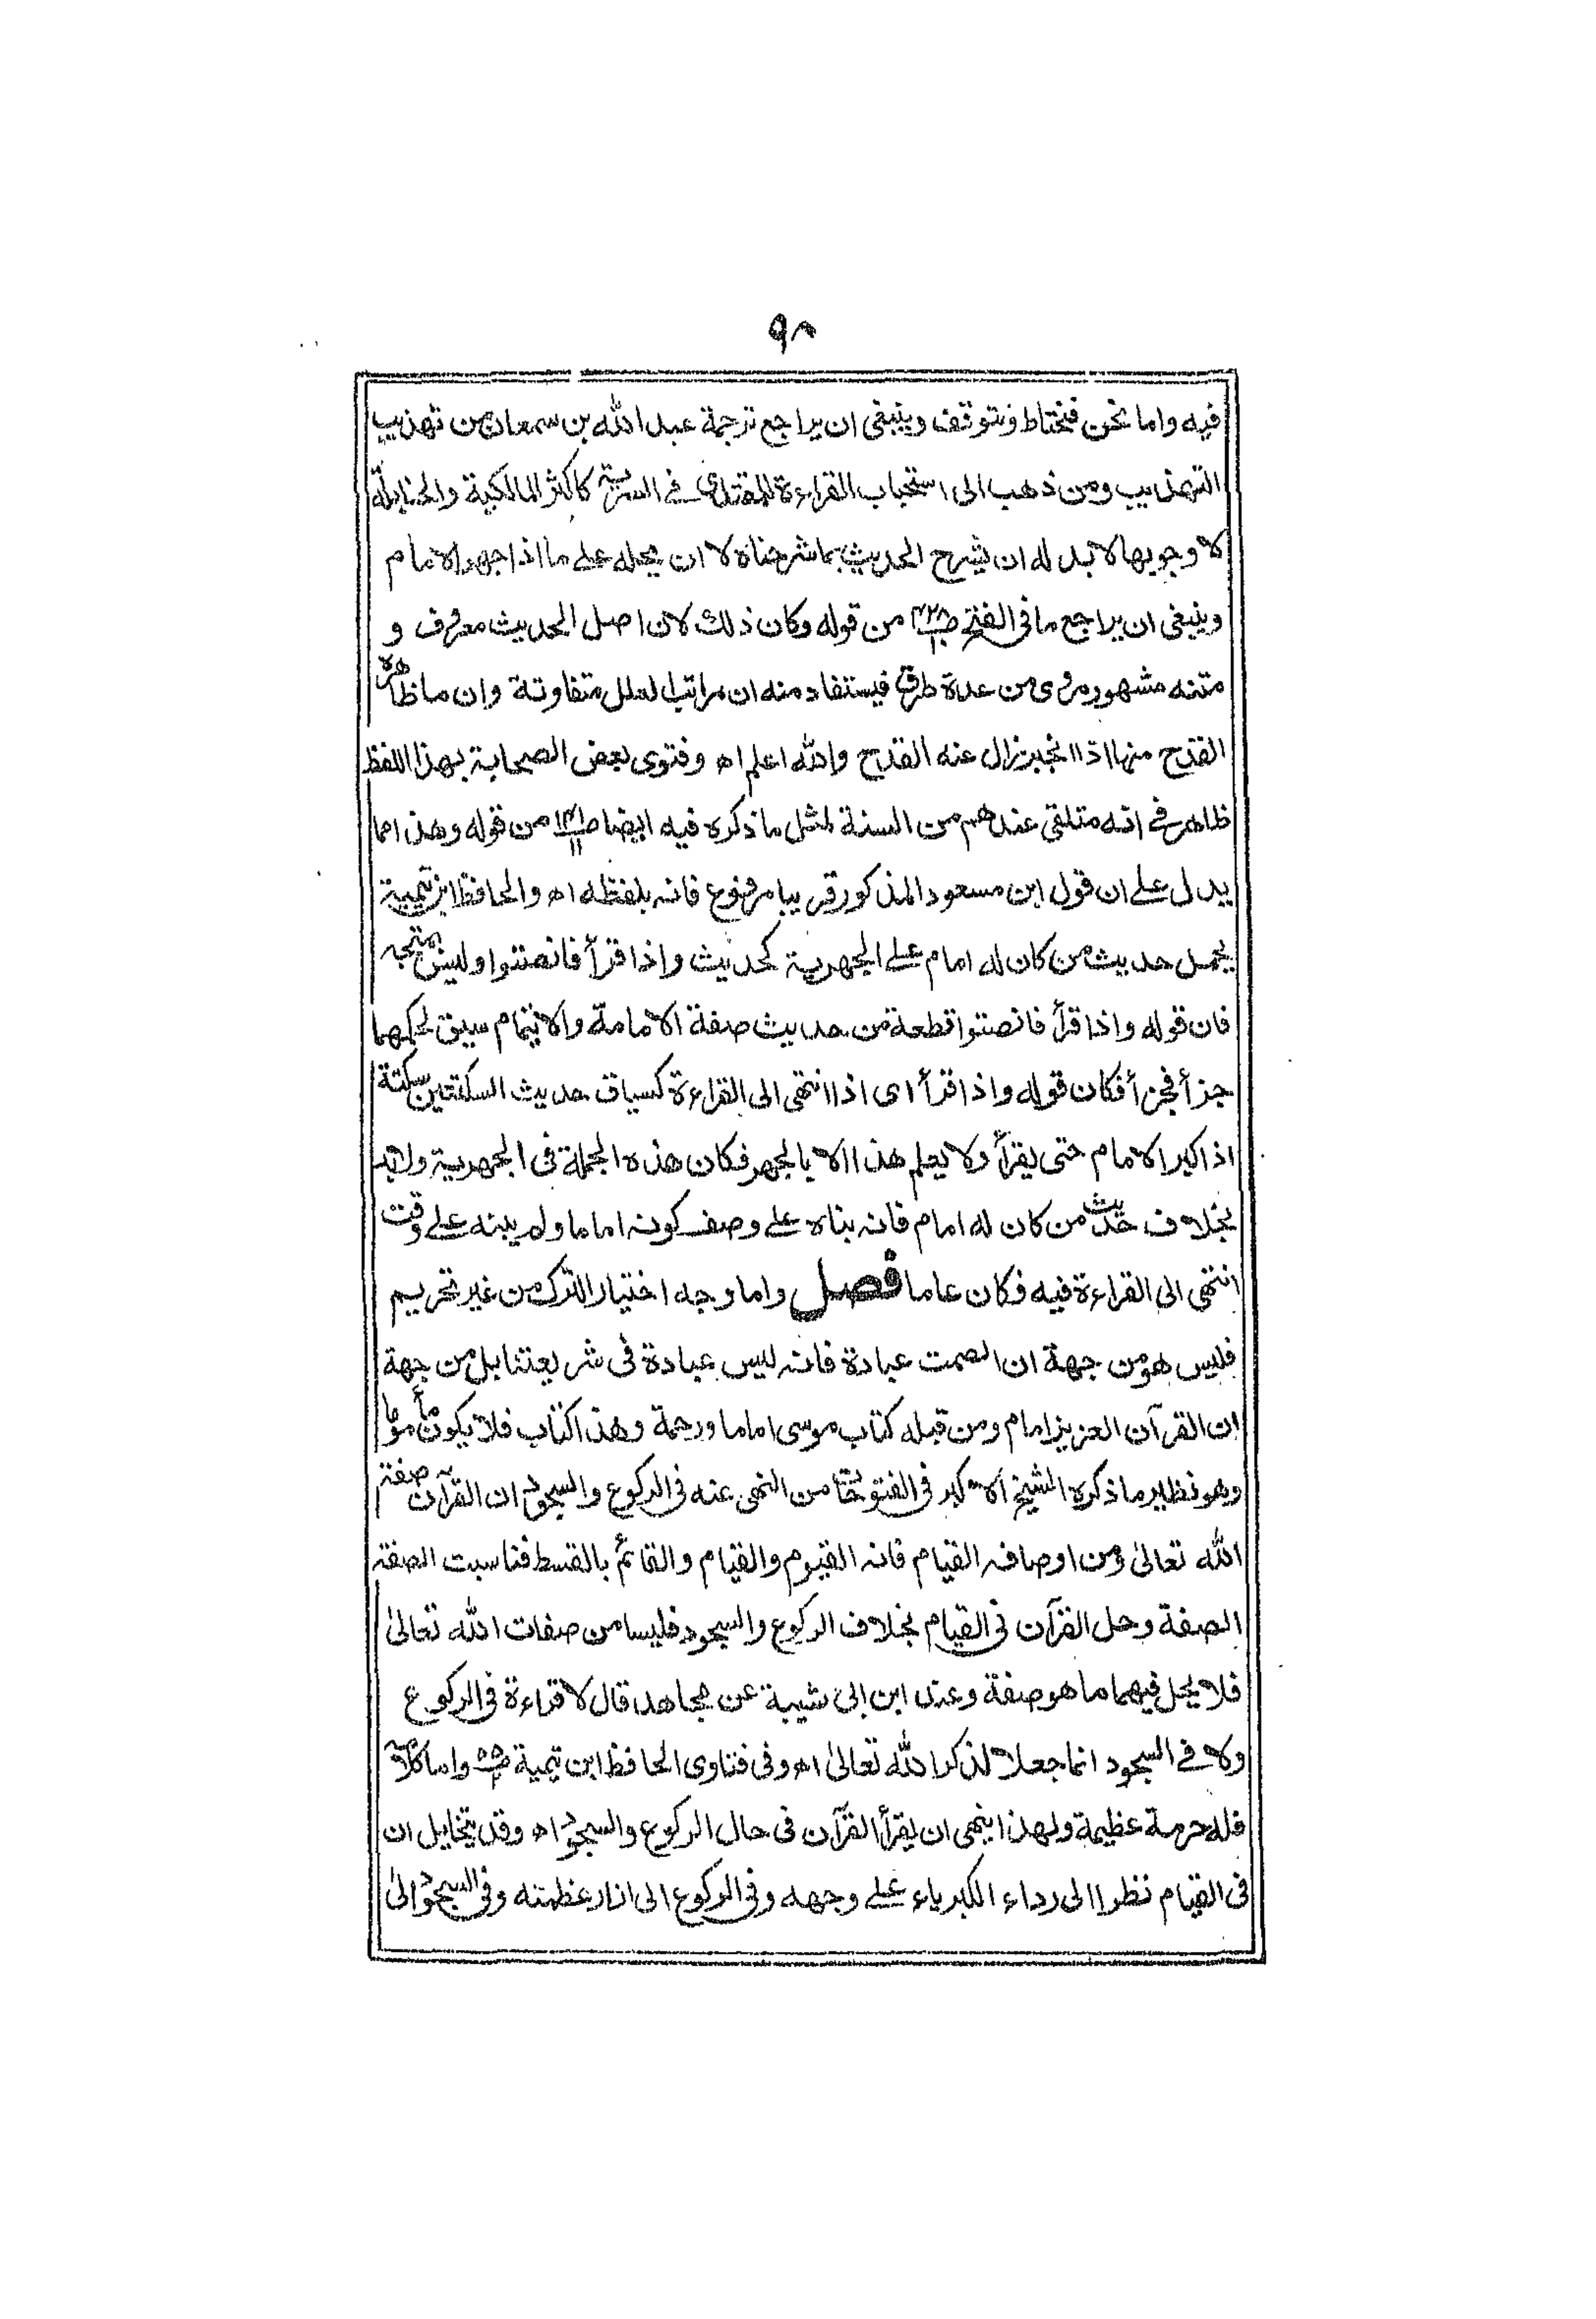 ٩٨
فيه واما نحن فنحتاط ونتوقف وينبغي ان يراجع ترجمة عبد الله بن سمعان من تهذيب
التهذيب ومن ذهب الى استحباب القراءة للمقتدي في السرية كاكثر المالكية والحنابلة
لا وجوبها لا بد له ان يشرح الحديث بما شرحناه لا ان يحمله على ما اذا جهر الامام
وينبغي ان يراجع ما في الفتح من قوله وكان ذلك لان اصل الحديث معروف و
متنه مشهور مروى من عدة طرق فيستفاد منه ان مراتب العلل متفاوتة وان ما ظاهره
القدح منها اذا انجبر زال عنه القدح والله اعلم اه وفتوى بعض الصحابة بهذا اللفظ
ظاهر في انه متلقى عندهم من السنة لمثل ما ذكره فيه ايضا من قوله وهذا مما
يدل على ان قول ابن مسعود المذكور قريبا مرفوع فانه بلفظه اه والحافظ ابن تيمية
يحمل حديث من كان له امام على الجهرية كحديث واذا قرأ فانصتوا وليس بمتجه
فان قوله واذا قرأ فانصتوا قطعة من حديث صفة الامامة والائتمام سيق لحكمهما
جزأ فجزأ فكان قوله واذا قرأ اى اذا انتهى الى القراءة كسياق حديث السكتتين سكتة
اذا كبر الامام حتى يقرأ ولا يعلم هذا الا بالجهر فكان هذه الجملة فى الجهرية ولا بد
بخلاف حديث من كان له امام فانه بناه على وصف كونه اماما ولم يبنه على وقت
انتهى الى القراءة فيه فكان عاما فصل واما وجه اختيار الترك من غير تحريم
فليس هو من جهة ان الصمت عبادة فانه ليس عبادة فى شريعتنا بل من جهة
ان القرآن العزيز امام ومن قبله كتاب موسى اماما ورحمة وهذا كتاب فلا يكون مأموما
وهو نظير ما ذكره الشيخ الاكبر فى الفتوحات من النهى عنه فى الركوع والسجود ان القرآن صفة
الله تعالىٰ ومن اوصافه القيام فانه القيوم والقيام والقائم بالقسط فناسبت الصفة
الصفة وحل القرآن فى القيام بخلاف الركوع والسجود فليسا من صفات الله تعالىٰ
فلا يحل فيهما ما هو صفة وعند ابن ابى شيبة عن مجاهد قال لا قراءة فى الركوع
ولا فى السجود انما جعلا لذكر الله تعالىٰ اه وفى فتاوى الحافظ ابن تيمية واما كلامه
فله حرمة عظيمة ولهذا ينهى ان يقرأ القرآن فى حال الركوع والسجود اه وقد يتخايل ان
فى القيام نظرا الى رداء الكبرياء على وجهه وفى الركوع الى ازار عظمته وفى السجود الىٰ